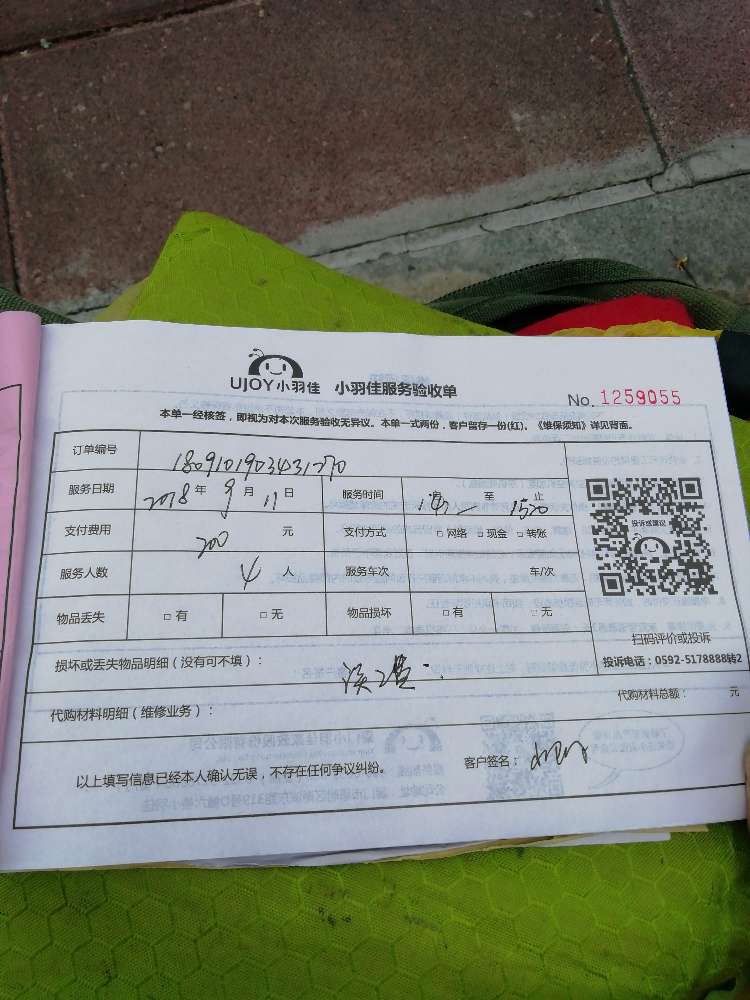 UJOY小羽佳 小羽佳服务验收单
No. 1259055
本单一经核签，即视为对本次服务验收无异议。本单一式两份，客户留存一份(红)。《维保须知》详见背面。
订单编号 1809101903431270
服务日期 2018 年 9 月 11 日 服务时间 至 1520 止
支付费用 200 元 支付方式 □ 网络 □ 现金 □ 转账
服务人数 4 人 服务车次 车/次
物品丢失 □ 有 □ 无 物品损坏 □ 有 □ 无
投诉或建议
扫码评价或投诉
投诉电话：0592-5178888转2
损坏或丢失物品明细（没有可不填）： 误工费
代购材料明细（维修业务）： 代购材料总额： 元
以上填写信息已经本人确认无误，不存在任何争议纠纷。 客户签名：